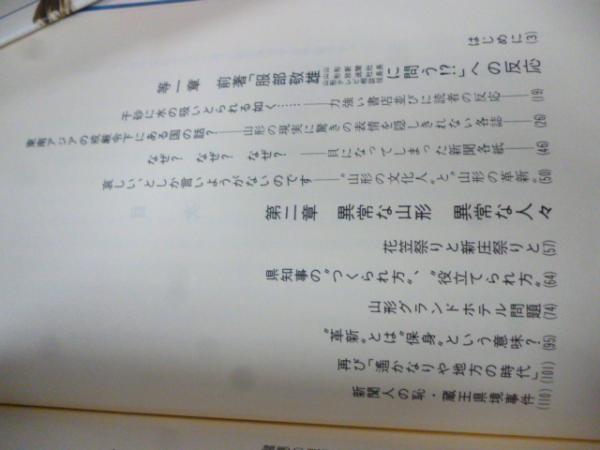 はじめに(3)
第一章 前著「服部敬雄に問う!?」への反応
干砂に水の吸いとられる如く……力強い書店並びに読者の反応(19)
東南アジアの戒厳令下にある国の話?——山形の現実に驚きの表情を隠しきれない各誌(26)
なぜ? なぜ? なぜ?——貝になってしまった新聞各紙(46)
哀しい、としか言いようがないのです——“山形の文化人”と“山形の革新”(50)
第二章 異常な山形 異常な人々
花笠祭りと新庄祭りと(57)
県知事の“つくられ方”、“役立てられ方”(64)
山形グランドホテル問題(74)
“革新”とは“保身”という意味?(95)
再び「遙かなりや地方の時代」(101)
新聞人の恥・蔵王県境事件(110)